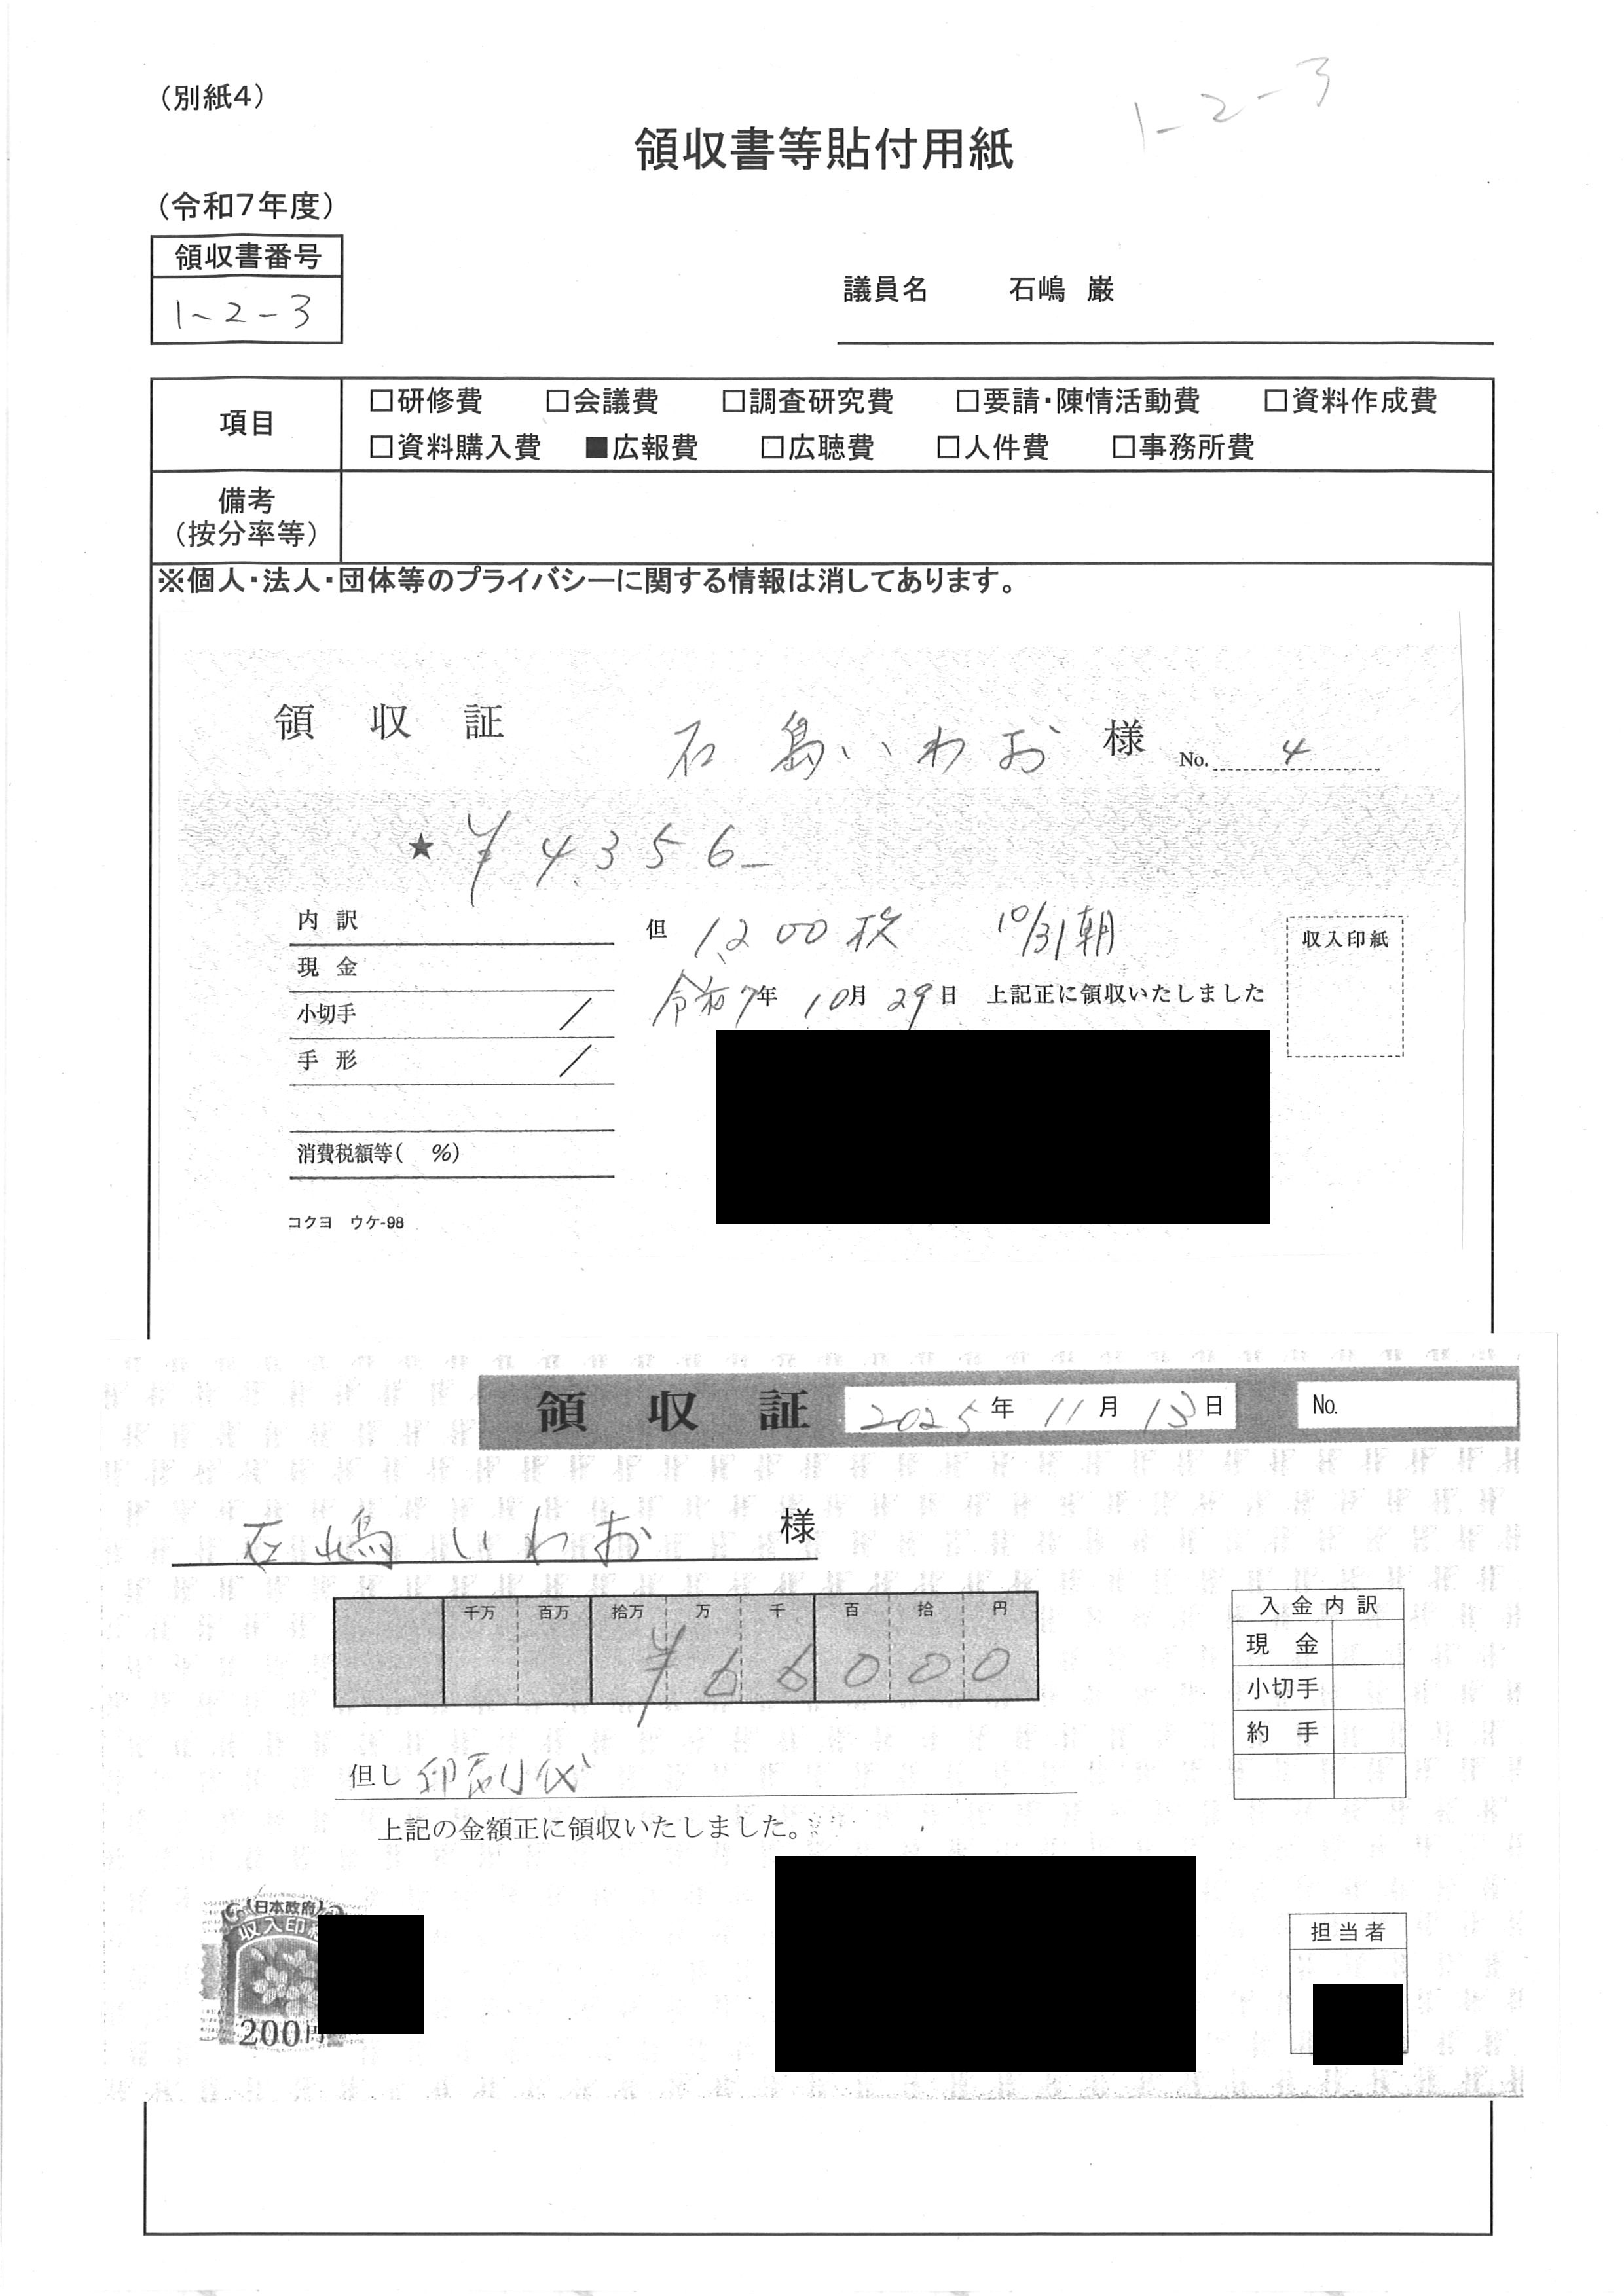 （別紙4）
1-2-3
領収書等貼付用紙
（令和7年度）
領収書番号
1-2-3
議員名　石嶋　巌
項目
□研修費　□会議費　□調査研究費　□要請・陳情活動費　□資料作成費
□資料購入費　■広報費　□広聴費　□人件費　□事務所費
備考
（按分率等）
※個人・法人・団体等のプライバシーに関する情報は消してあります。
領収証　石島いわお様　No. 4
★ ¥4,356-
内訳
但 1,200枚　10/31朝
収入印紙
現金
令和7年10月29日　上記正に領収いたしました
小切手 /
手形 /
消費税額等(　%)
コクヨ　ウケ-98
領収証　2025年11月13日　No.
石嶋いわお様
千万　百万　拾万　万　千　百　拾　円
¥66000
入金内訳
現金
小切手
約手
但し 印刷代
上記の金額正に領収いたしました。
日本政府
収入印
200円
担当者